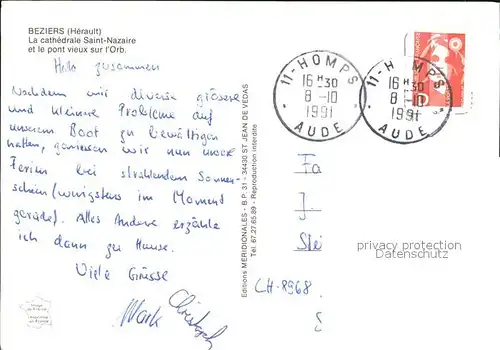 BEZIERS (Hérault)
La cathédrale Saint-Nazaire
et le pont vieux sur l'Orb.
Hallo zusammen
Nachdem wir diverse grössere
und kleinere Probleme auf
unserem Boot zu bewältigen
hatten, geniessen wir nun unsere
Ferien bei strahlendem Sonnen-
schein (wenigstens im Moment
gerade). Alles Andere erzähle
ich dann zu Hause.
Viele Grüsse
Mark
Christoph
Editions MERIDIONALES - B.P. 31 - 34430 ST JEAN DE VEDAS
Tél. 67.27.65.89 - Reproduction interdite
11-HOMPS
16H30
8-10
1991
AUDE
11-HOMPS
16H30
8-10
1991
AUDE
Fa
J.
Ste
privacy protection
Datenschutz
CH-8968